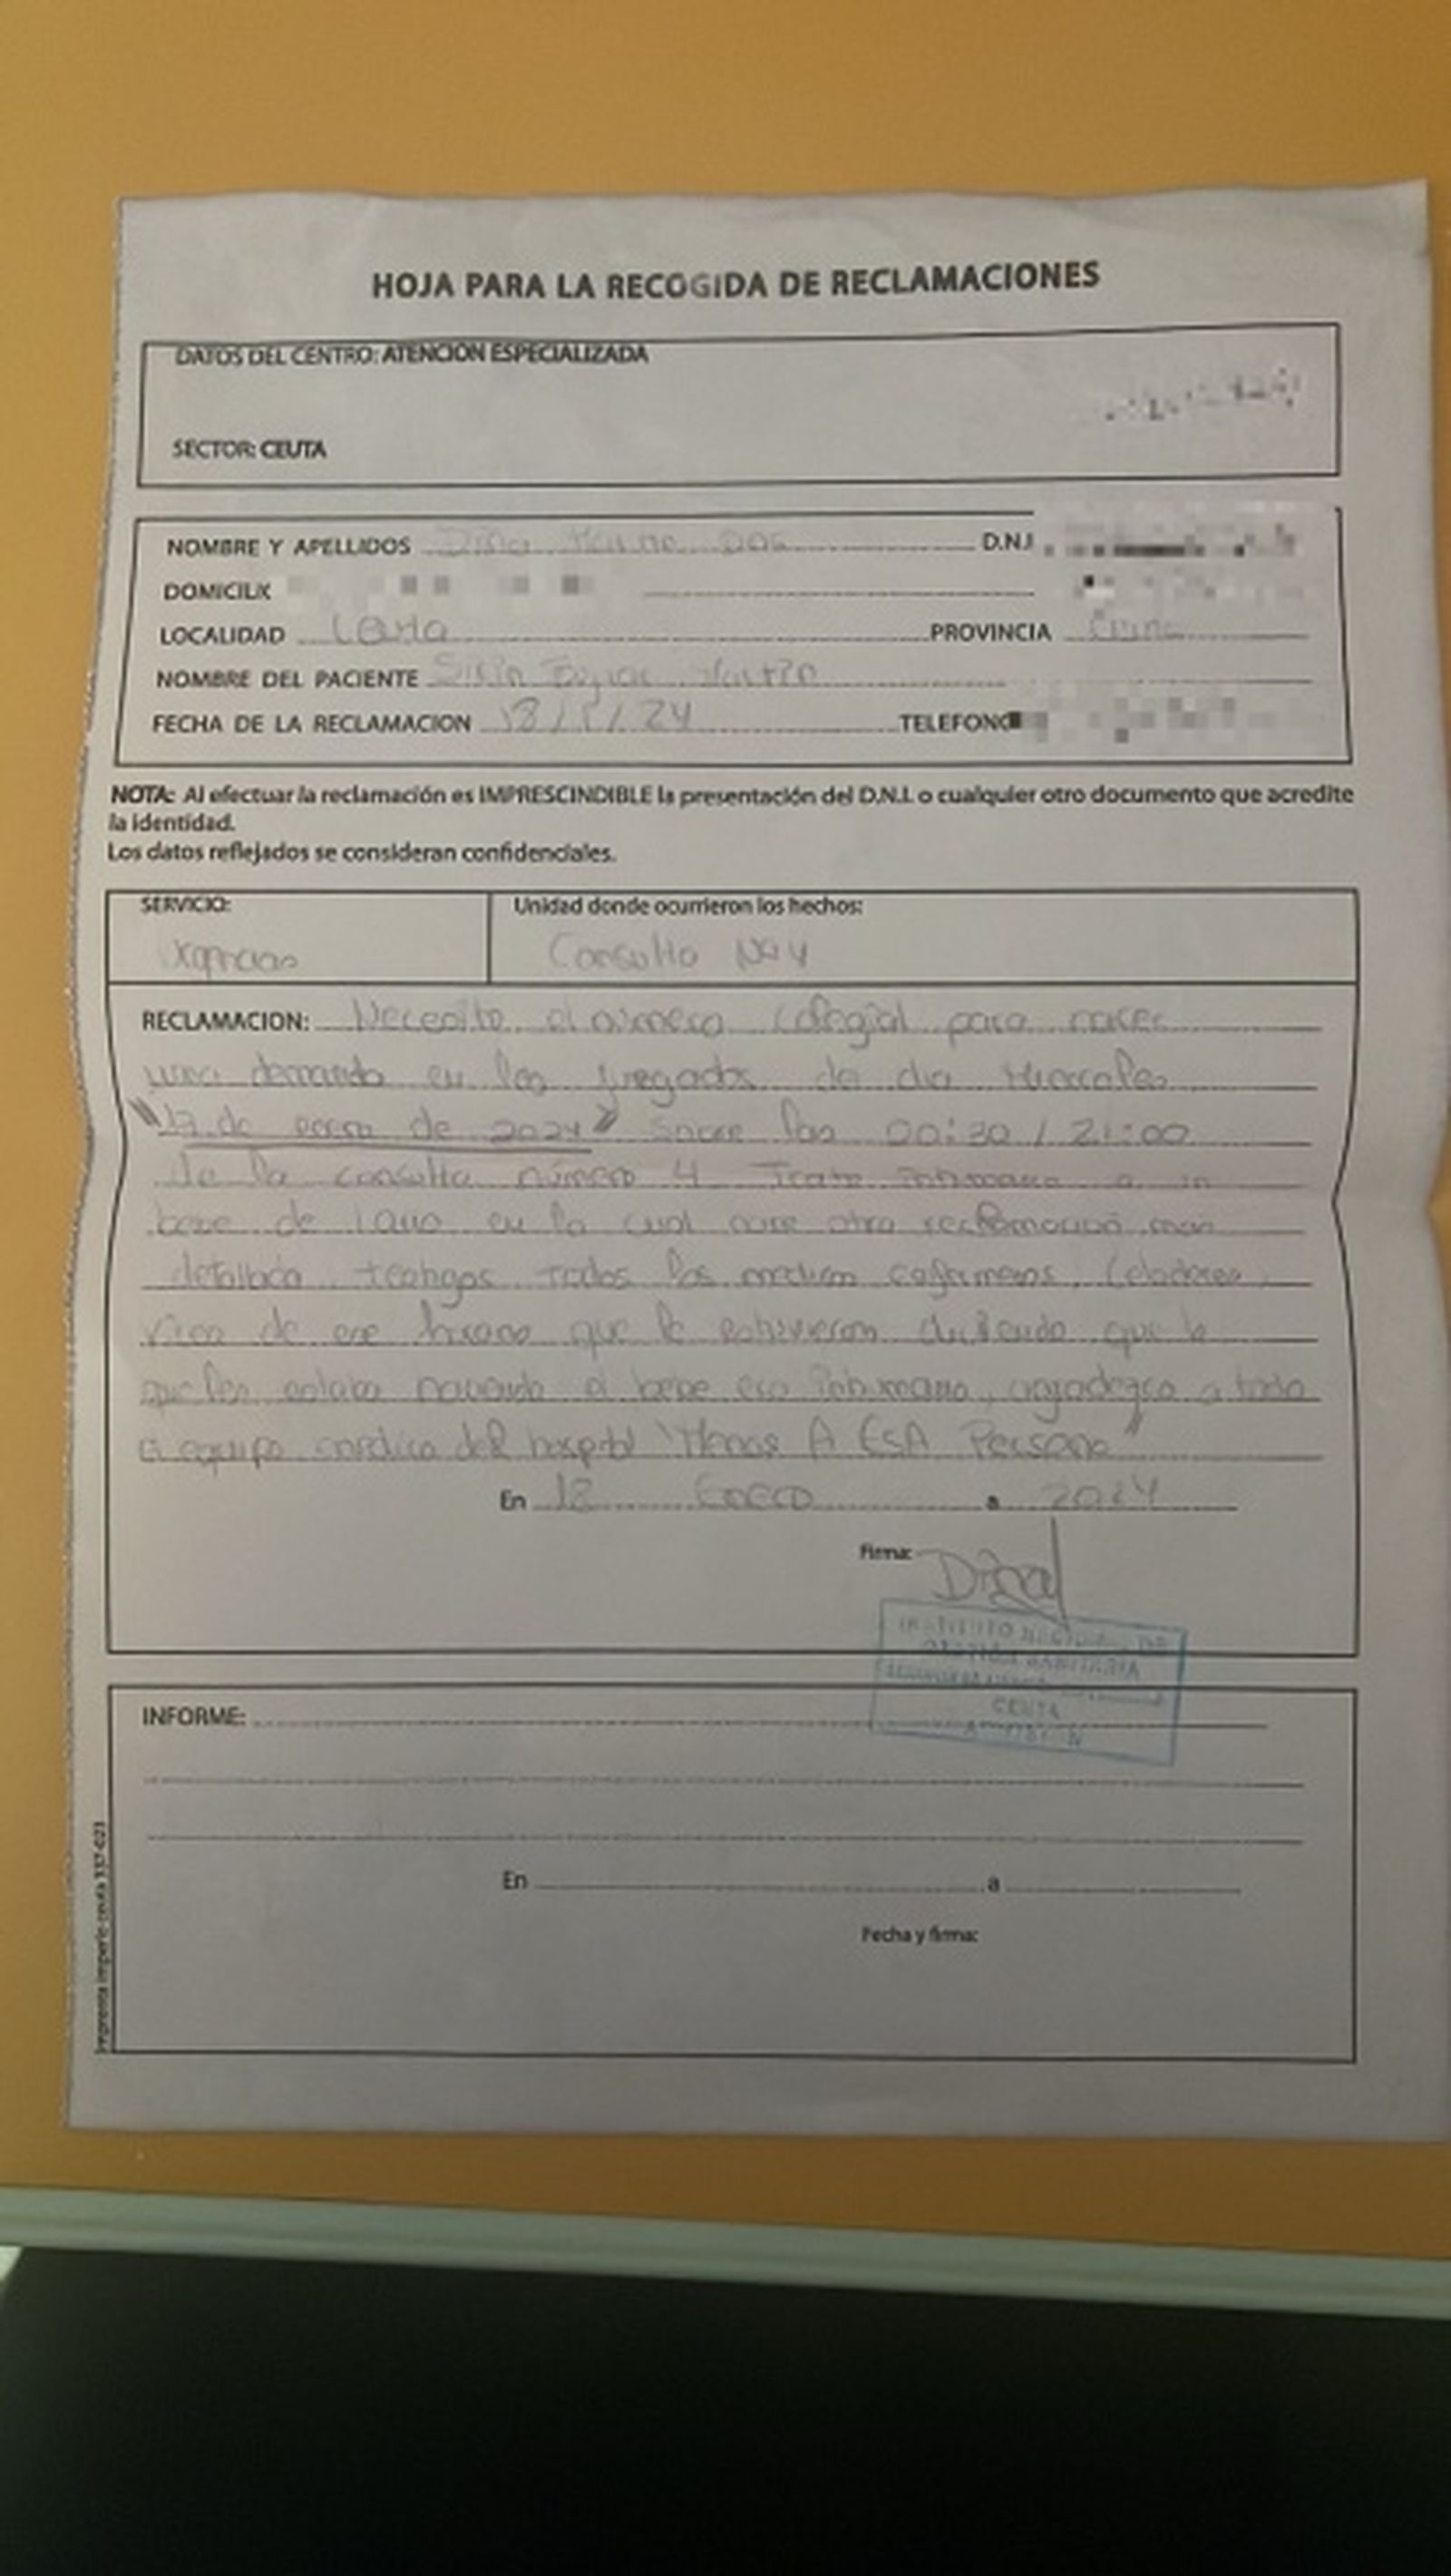 HOJA PARA LA RECOGIDA DE RECLAMACIONES
DATOS DEL CENTRO: ATENCION ESPECIALIZADA
SECTOR: CEUTA
NOMBRE Y APELLIDOS Dina D.N.I
DOMICILI
LOCALIDAD Ceuta PROVINCIA Ceuta
NOMBRE DEL PACIENTE
FECHA DE LA RECLAMACION 18/1/24 TELEFONO
NOTA: Al efectuar la reclamación es IMPRESCINDIBLE la presentación del D.N.I. o cualquier otro documento que acredite
la identidad.
Los datos reflejados se consideran confidenciales.
SERVICIO: Unidad donde ocurrieron los hechos:
Urgencias Consulta Nº 4
RECLAMACION: Necesito el número Colegial para hacer
una demanda en los juzgados de dia Miercoles
"17 de enero de 2024" sobre las 20:30 / 21:00
de la consulta número 4 Trato inhumano a un
bebe de 1 año en la cual hare otra reclamación mas
detallada todos los medicos enfermeros, Celadores
de ese que le estuvieron diciendo que lo
que les estaba haciendo al bebe era inhumano, agradezco a todo
el equipo medico del hospital "Menos A ESA Persona"
En 18 Enero a 2024
Firma: Dina
INSTITUTO NACIONAL DE
GESTION SANITARIA
CEUTA
INFORME:
En a
Fecha y firma:
Imprenta Imperio-ceuta